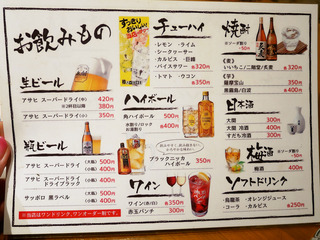 お飲みもの
生ビール
アサヒ スーパードライ(中) 420円
※2杯目以降 380円
アサヒ スーパードライ(小) 350円
瓶ビール
アサヒ スーパードライ (大瓶) 500円
(小瓶) 400円
アサヒ スーパードライ
ドライブラック (小瓶) 400円
サッポロ 黒ラベル (大瓶) 500円
(小瓶) 400円
※当店はワンドリンク、ワンオーダー制です。
すっきり
おいしい!
チューハイ
・レモン ・ライム
・シークヮーサー
・カルピス ・巨峰
・パイン 各320円
・トマト ・ウコン 各350円
ハイボール
角ハイボール 500円
水割り/ロック 各400円
ブラックニッカ
ハイボール 350円
ワイン
ワイン(赤/白) 350円
赤玉パンチ 300円
焼酎
《麦》
いいちこ/二階堂/呉麦 各320円
《芋》
薩摩宝山 350円
黒霧島/白波 各400円
日本酒
大関 300円
大関 冷酒 400円
すだち冷酒 400円
梅酒
梅酒 400円
ソフトドリンク
・烏龍茶 ・オレンジジュース
・コーラ ・カルピス 各250円